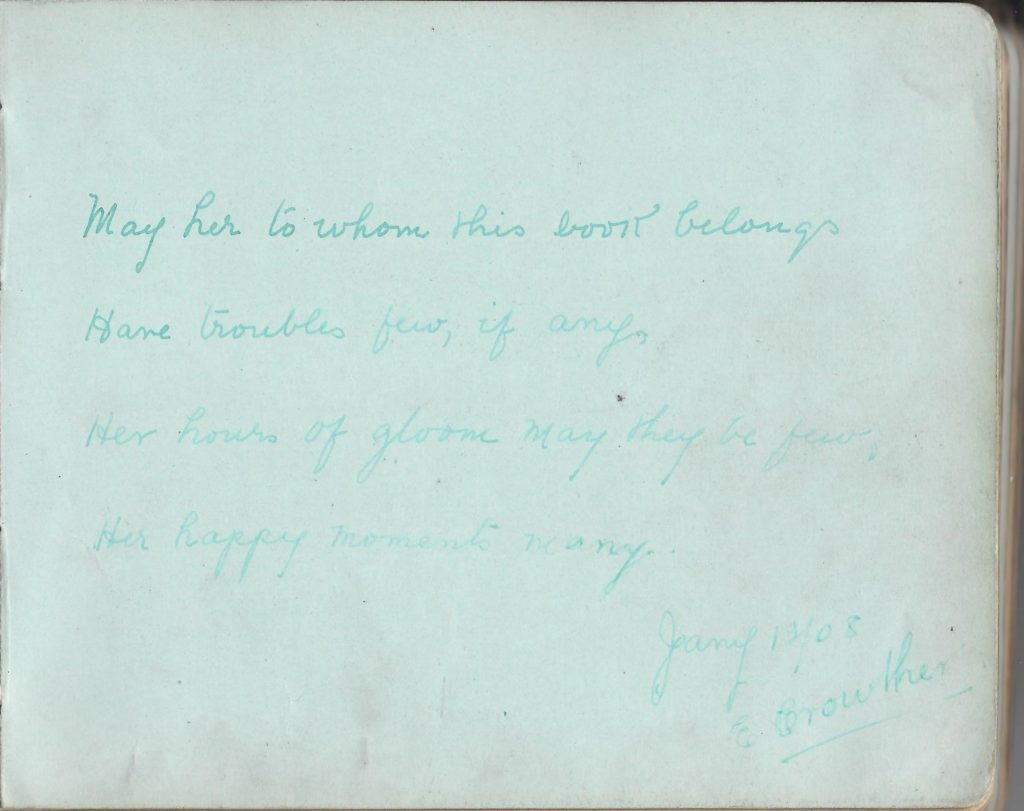 May her to whom this book belongs
Have troubles few, if any,
Her hours of gloom may they be few,
Her happy moments many.
Jany 13/08
E Crowther